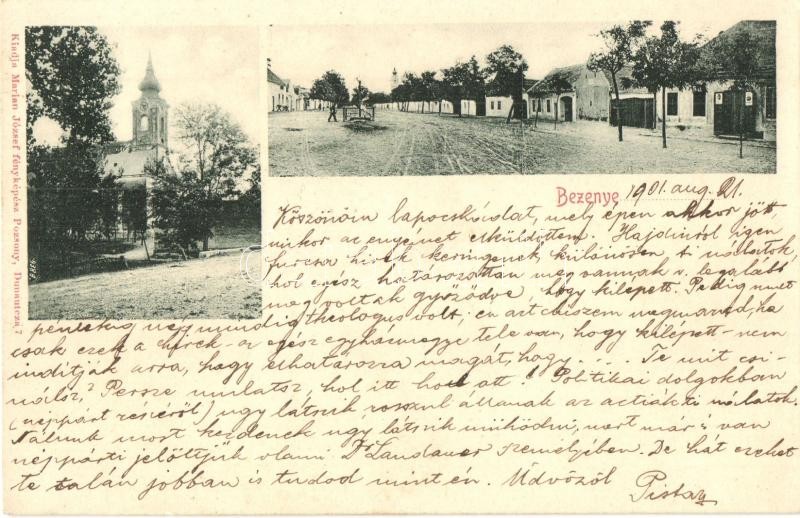 Kiadja Marian József fényképész Pozsony, Dunautcza 7
Bezenye 1901. aug. 21.
Köszönöm lapocskádat, mely épen akkor jött,
mikor az enyémet elküldöttem. Hajdinról igen
furcsa hirek keringenek, különösen ti nálatok,
hol egész határozottan meg vannak v. legalább
meg voltak győződve, hogy kilépett. Pedig mult
péntekig még mindig theologus volt: én azt hiszem megmarad, ha
csak ezek a hirek - az egész egyházmegye tele van, hogy kilépett - nem
inditják arra, hogy elhatározza magát, hogy .... Te mit csi-
nálsz? Persze mulatsz, hol itt hol ott! Politikai dolgokban
(néppárt részéről) ugy látszik rosszul állanak az actiák ti nálatok.
Nálunk most kezdenek ugy látszik működni, mert már is van
néppárti jelöltjük valami Dr Landauer személyében. De hát ezeket
te talán jobban is tudod mint én. Üdvözöl
Pista